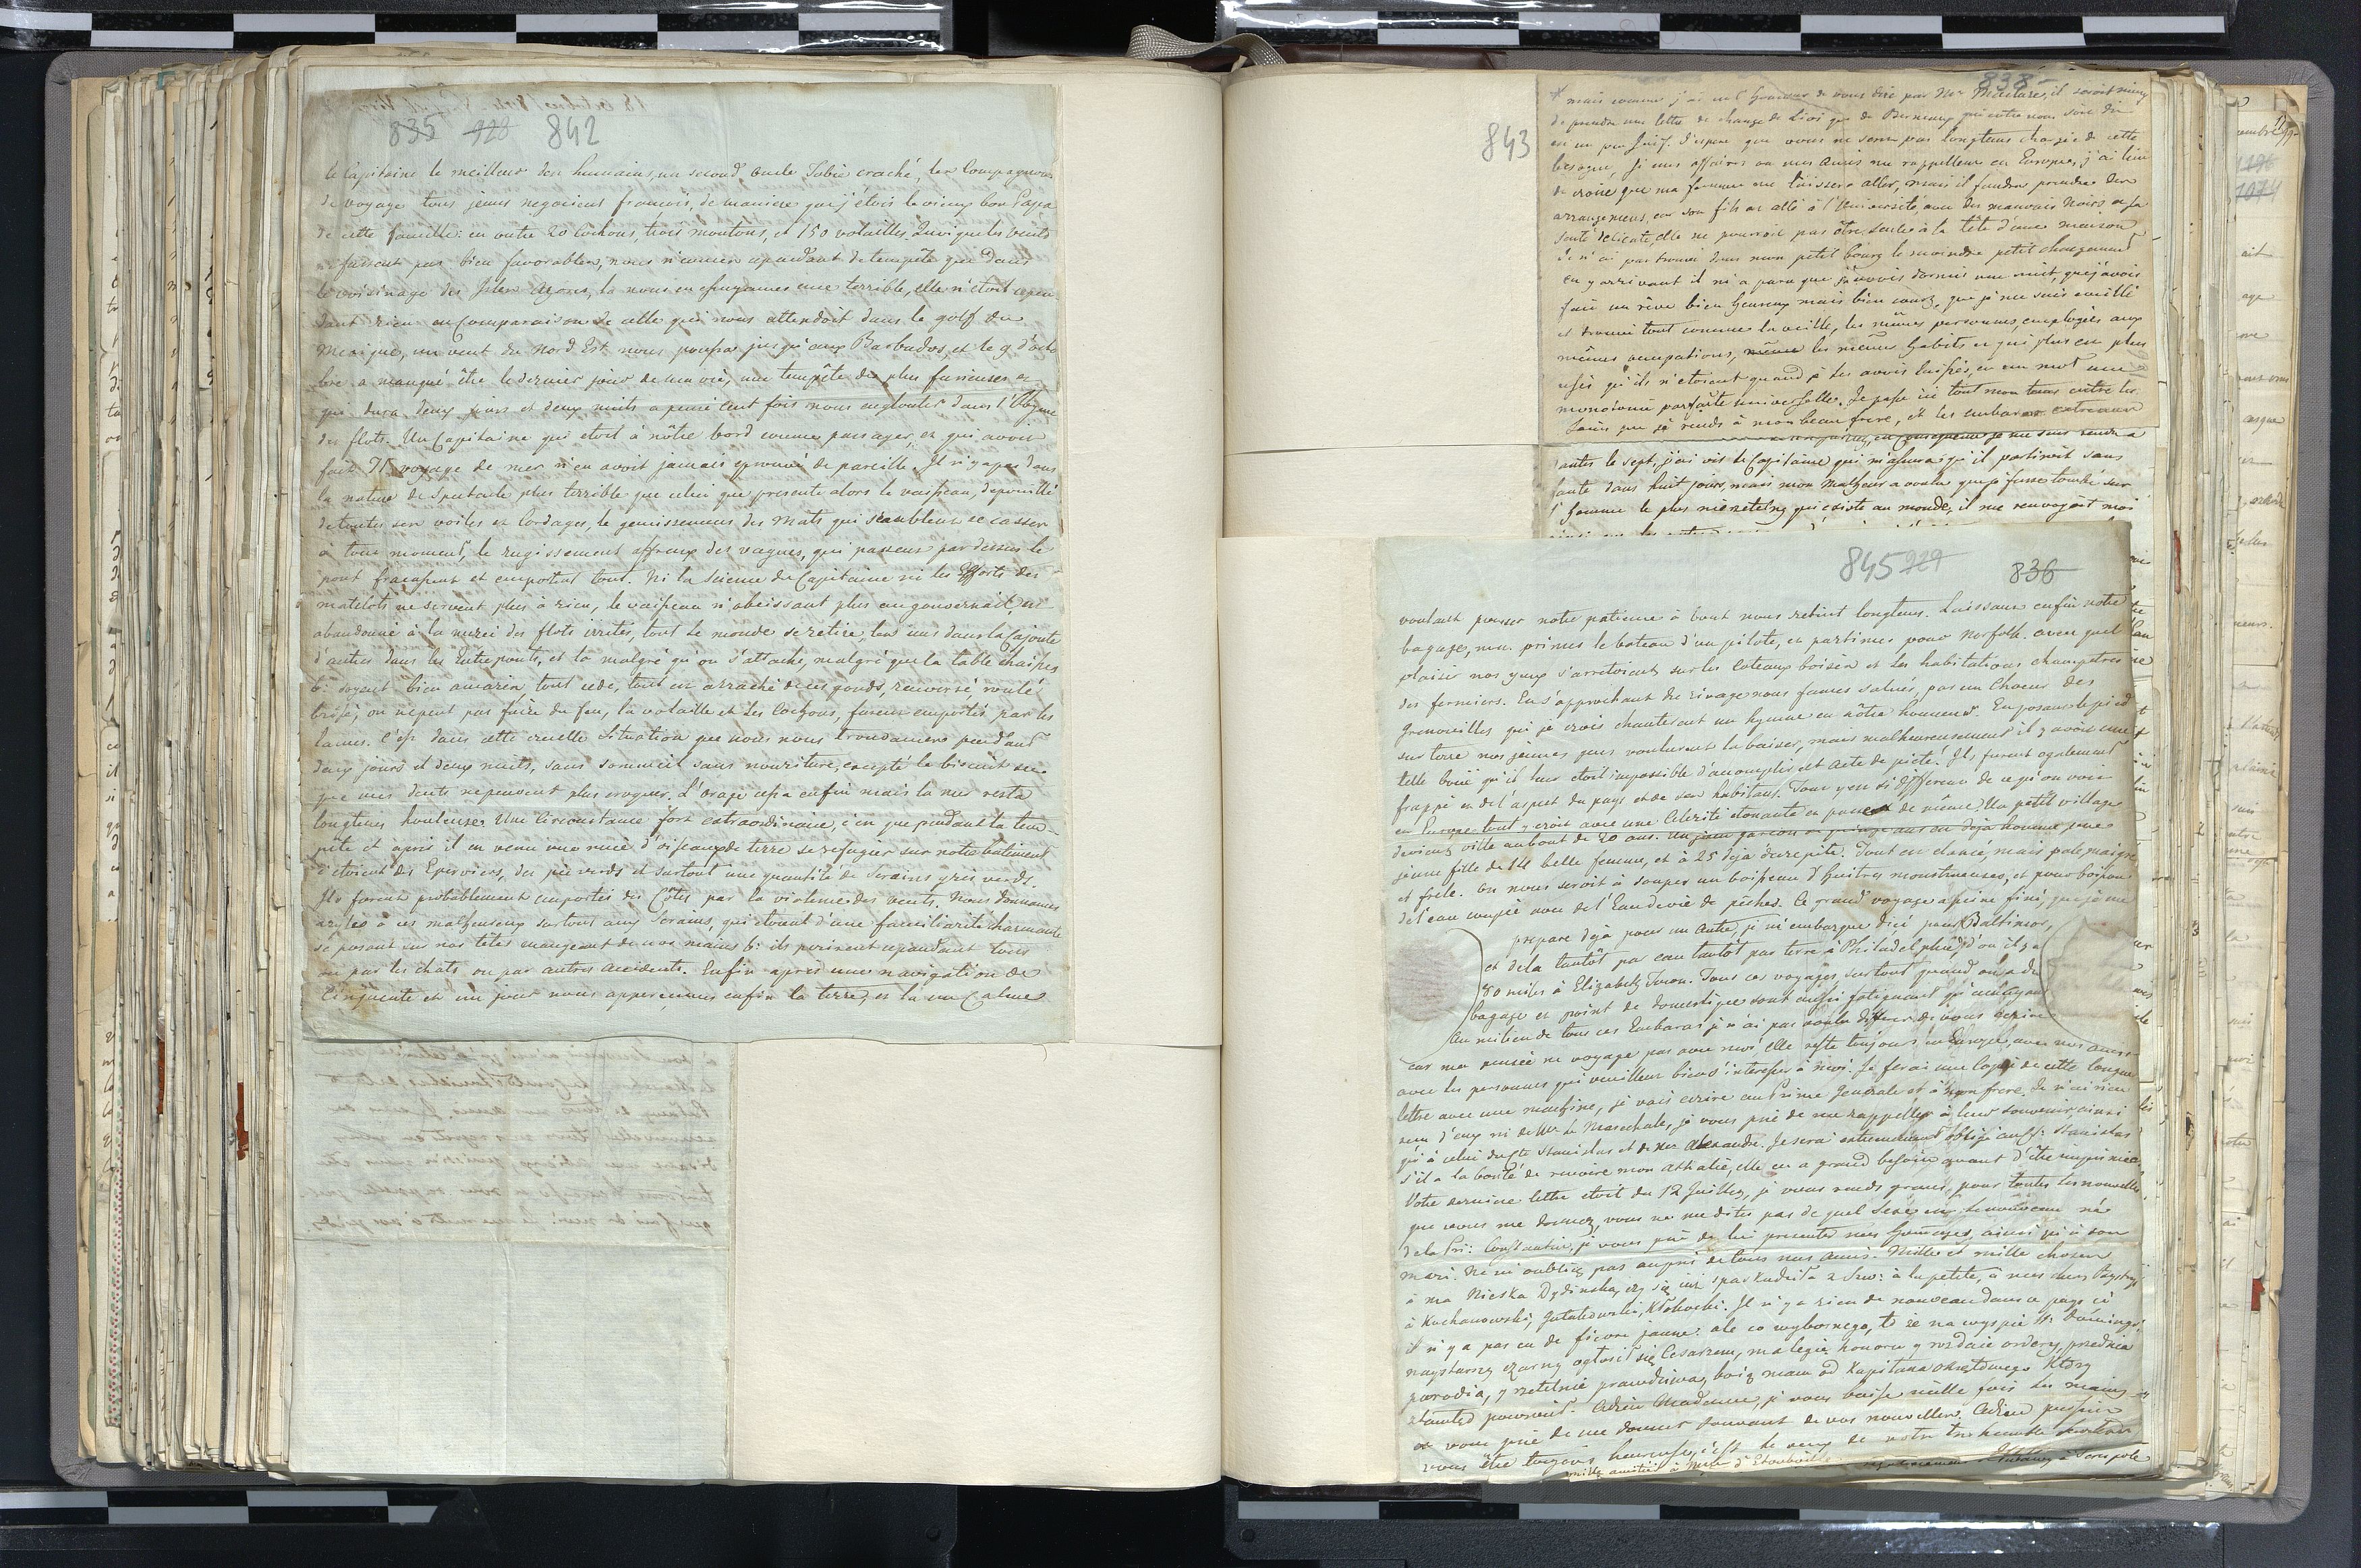 835 928 842
le Capitaine le meilleur des humains, un second oncle Tobie craché, les Compagnons
de voyage tous jeunes negociens francois, de maniere que j'étois le vieux bon Papa
de cette famille: en outre 20 Cochons, trois moutons, et 150 volailles. Quoique les vents
fussent pas bien favorables, nous n'eumes cependant de tempête que dans
le voisinage des Isles Azores, la nous en essuyames une terrible, elle n'étoit cepen
dant rien en Comparaison de celle qui nous attendoit dans le golf du
Mexique, un vent du Nord Est nous poussa jusqu'aux Barbudos, et le 9 d'octo
bre a manqué être le dernier jour de ma vie, une tempête des plus furieuses et
qui dura deux jours et deux nuits a pensé cent fois nous engloutir dans l'Abyme
des flots. Un Capitaine qui etoit à nôtre bord comme passager, et qui avoit
fait voyage de mer n'en avoit jamais eprouvé de pareille. Il n'y a pas dans
la nature de Spectacle plus terrible que celui que presente alors le vaisseau, depouillé
de toutes ses voiles et Cordages, le gemissement des Mats qui semblent se casser
à tout moment, le rugissement affreux des vagues, qui passent par dessus le
pont fracassent et emportent tout. Ni la Science du Capitaine ni les Efforts des
matelots ne servent plus à rien, le vaisseau n'obeissant plus au gouvernail est
abandonné à la merci des flots irrités, tout le monde se retire, les uns dans la Cajoute
d'autres dans les Entreponts, et la malgré qu'on s'attache, malgré que la table chaises
&: soyent bien amarés, tout cede, tout est arraché de ses gonds, renversé roulé
brisé, on ne peut pas faire du feu, la volaille et les Cochons, furent emportés par les
lames. C'est dans cette cruelle Situation que nous nous trouvames pendant
deux jours et deux nuits, sans sommeil sans nouriture, excepté le biscuit sec
que mes dents ne peuvent plus croquer. L'orage cessa enfin mais la mer resta
longtems houleuse. Une Circonstance fort extraordinaire, c'est que pendant la tem-
pête et après il est venu une nueé d'oiseaux de terre se refugier sur notre batiment
c'etoient des Eperviers, des pic verds et surtout une quantité de Serains gris verds.
Ils furent probablement emportés des Côtes par la violence des vents. Nous donnames
azyle à ces malheureux surtout aux Serains, qui etoient d'une familiarité charmante
se posant sur nos têtes mangeant de nos mains &: ils perirent cependant tous
ou par les chats ou par autres accidents. Enfin après une navigation de
Cinquante et un jour nous appercumes enfin la terre, et la un Calme
838
843
mais comme j'ai eu l'honneur de vous dire par Mr il seroit mieux
de prendre une lettre de change de Livi que de Berneaux qui entre nous soit dit
est un peu Juif. J'espere que vous ne serez pas longtems chargée de cette
besogne, si mes affaires ou mes Amis me rappellent en Europe, j'ai lieu
de croire que ma femme me laissera aller, mais il faudra prendre des
arrangemens, car son fils est allé à l'Université, avec des mauvais Noirs et sa
Santé delicate, elle ne pourroit pas être Seule à la tête d'une maison
Je n'ai pas trouvé dans mon petit bourg le moindre petit changement
en y arrivant il m'a paru que j'avois dormi une nuit, que j'avois
fait un rêve bien heureux mais bien court, que je me suis eveillé
et trouvé tout comme la veille, les mêmes personnes, employées aux
mêmes occupations, même les memes habits et qui plus est plus
usés qu'ils n'etoient quand je les avois laissés, en un mot une
monotonie parfaite universelle. Je passe ici tout mon tems entre les
Soins que je rends à mon beau frere, et les embaras extremes
en Consequence je me suis rendu à
antes le sept, j'ai vis le Capitaine qui m'assura qu'il partiroit sans
faute dans huit jours, mais mon Malheur a voulu que je fusse tombé sur
l'homme le plus nierzetelny qui existe au monde, il me renvoyoit moi
845 929 836
voulant pousser notre patience à bout nous retint longtems. Laissant enfin notre
bagage, nous primes le bateau d'un pilote, et partimes pour Norfolk. avec quel
plaisir nos yeux s'arretoient sur les Coteaux boisés et les habitations champetres
des fermiers. En s'approchant du rivage nous fumes salués, par un Choeur des
Grenouilles qui je crois chanterent un hymne en nôtre honneur. En posant le pied
sur terre nos jeunes gens voulurent la baiser, mais malheureusement il y avoit une
telle boue qu'il leur etoit impossible d'accomplir cet Acte de pieté! Ils furent egalement
frappé et de l'aspect du pays et de ses habitans. Tout y est si different de ce qu'on voit
en Europe tout y croit avec une Celerité etonante et passe de même Un petit village
devient ville au bout de 20 ans. Un jeune garcon de quinze ans est deja homme, une
jeune fille de 14 belle femme, et à 25 deja decrepite. Tout est elancé, mais pale, maigre
et frêle. On nous servit à souper un boisseau d'huitres monstrueuses, et pour boisson
de l'eau coupée avec de l'Eau de vie de pêches. Ce grand voyage à peine fini, que je me
prepare deja pour un Autre, je m'embarque d'ici pour Baltimor,
et dela tantôt par eau tantôt par terre à Philadelphie, d'où il y a
80 miles à Elizabeth Town. Tous ces voyages, surtout quand on a du
bagage et point de domestique sont aussi fatiguant qu'ennuyans
Au milieu de tous ces Embaras je n'ai pas voulu differer de vous ecrire
car ma pensée ne voyage pas avec moi elle reste toujours en Europe, avec mes amis
avec les personnes qui veuillent bien s'interesser à moi. Je ferai une Copie de cette longue
lettre avec une machine, je vais ecrire au Prince General et à mon frere. Je n'ai rien
reçu d'eux ni de Mr le Marechal, je vous prie de me rappeller à leur souvenir, ainsi
qu'à celui du Cte Stanislas et de Mr Alexandre. Je serai extremement obligé au Cte: Stanislas
s'il a la bonté de revoire mon Athalie, elle en a grand besoin avant d'être imprimée.
Votre derniere lettre etoit du 12 Juillet, je vous rends graces, pour toutes les nouvelles
que vous me donnez, vous ne me dites pas de quel Sexe est le nouveau né
de la Pri: Constantin, je vous prie de lui presenter mes hommages, ainsi qu'à son
mari. Ne m'oubliez pas auprès de tous mes Amis. Mille et mille choses
à ma Nieska Dydinska, czy się już spaskudziła z Szw: à la petite, à mes chers
à Kochanowski, Kłokocki. Il n'y a rien de nouveau dans ce pays ci
il n'y a pas eu de fievre jaune. ale co wybornego, to ze na wyspie St: Domingo
naystarszy czarny ogłosił się Cesarzem, ma legią honoru y rozdaie ordery, przednia
parodia, y rzetelnie prawdziwa, bo ią mam od Kapitana okrętowego Który
ztamtąd powrócił. Adieu Madame, je vous baise mille fois les mains
et vous prie de me donner souvent de vos nouvelles. Adieu puissiez
vous être toujours heureuse, c'est le voeu de votre tres humble serviteur
mille amitiés à Mlle d'